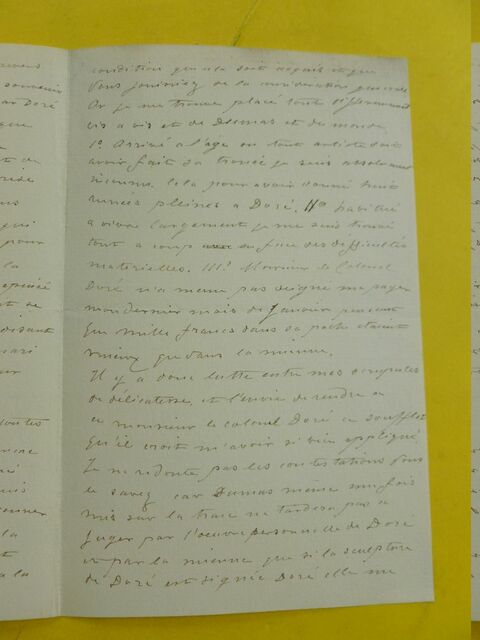 condition que cela soit acquis et que
vous jouissiez de la considération générale
Or je me trouve placé tout différemment
vis a vis et de Dumas et du monde.
1º Arrivé a l'age ou tout artiste doit
avoir fait sa trouée je suis absolument
inconnu. Cela pour avoir donné huit
années pleines a Doré. IIº habitué
a vivre largement je me suis trouvé
tout a coup en face des difficultés
materielles. III.º Monsieur le Colonel
Doré n'a meme pas daigné me payer
mon dernier mois de Janvier pensant
que mille francs dans sa poche etaient
mieux que dans la mienne.
Il y a donc lutte entre mes scrupules
de délicatesse, et l'envie de rendre a
ce monsieur le colonel Doré ce soufflet
qu'il croit m'avoir si bien appliqué.
Je ne redoute pas les contestations vous
le savez car Dumas meme une fois
mis sur la trace ne tardera pas a
juger par l'oeuvre personnelle de Doré
et par la mienne que si la sculpture
de Doré est signée Doré elle me